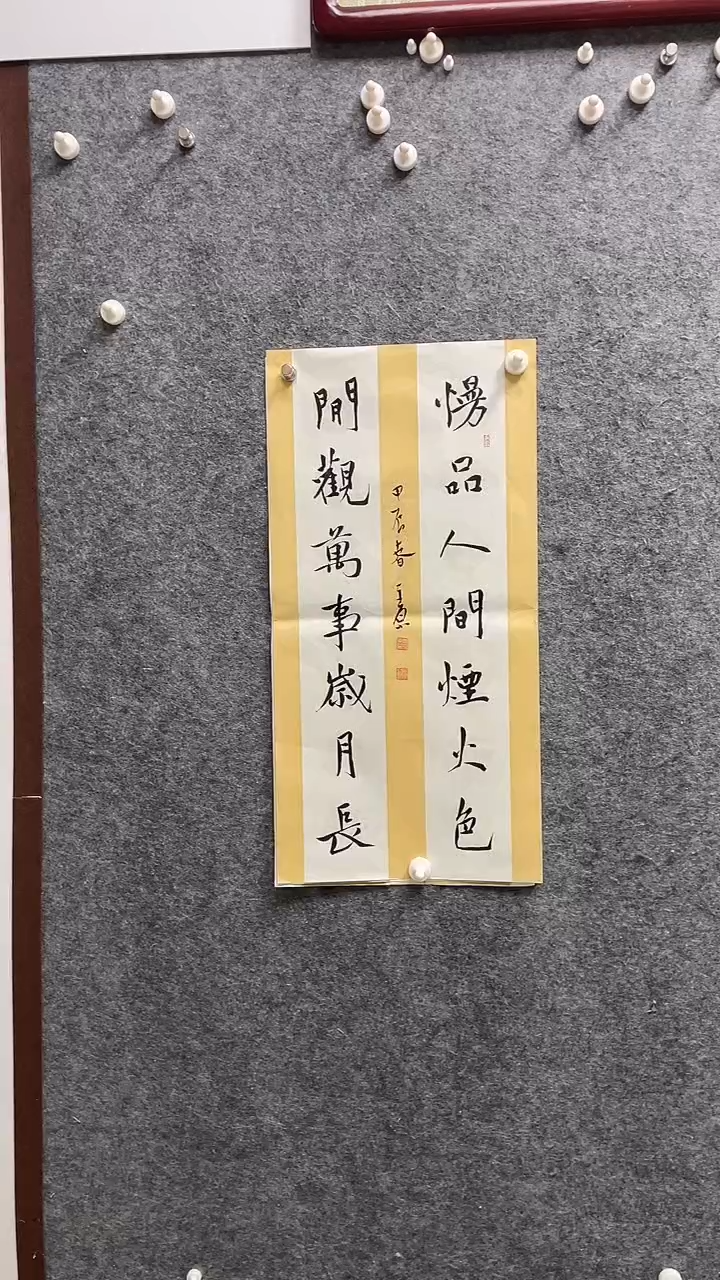 慢品人間煙火色
閒觀萬事歲月長
甲辰春